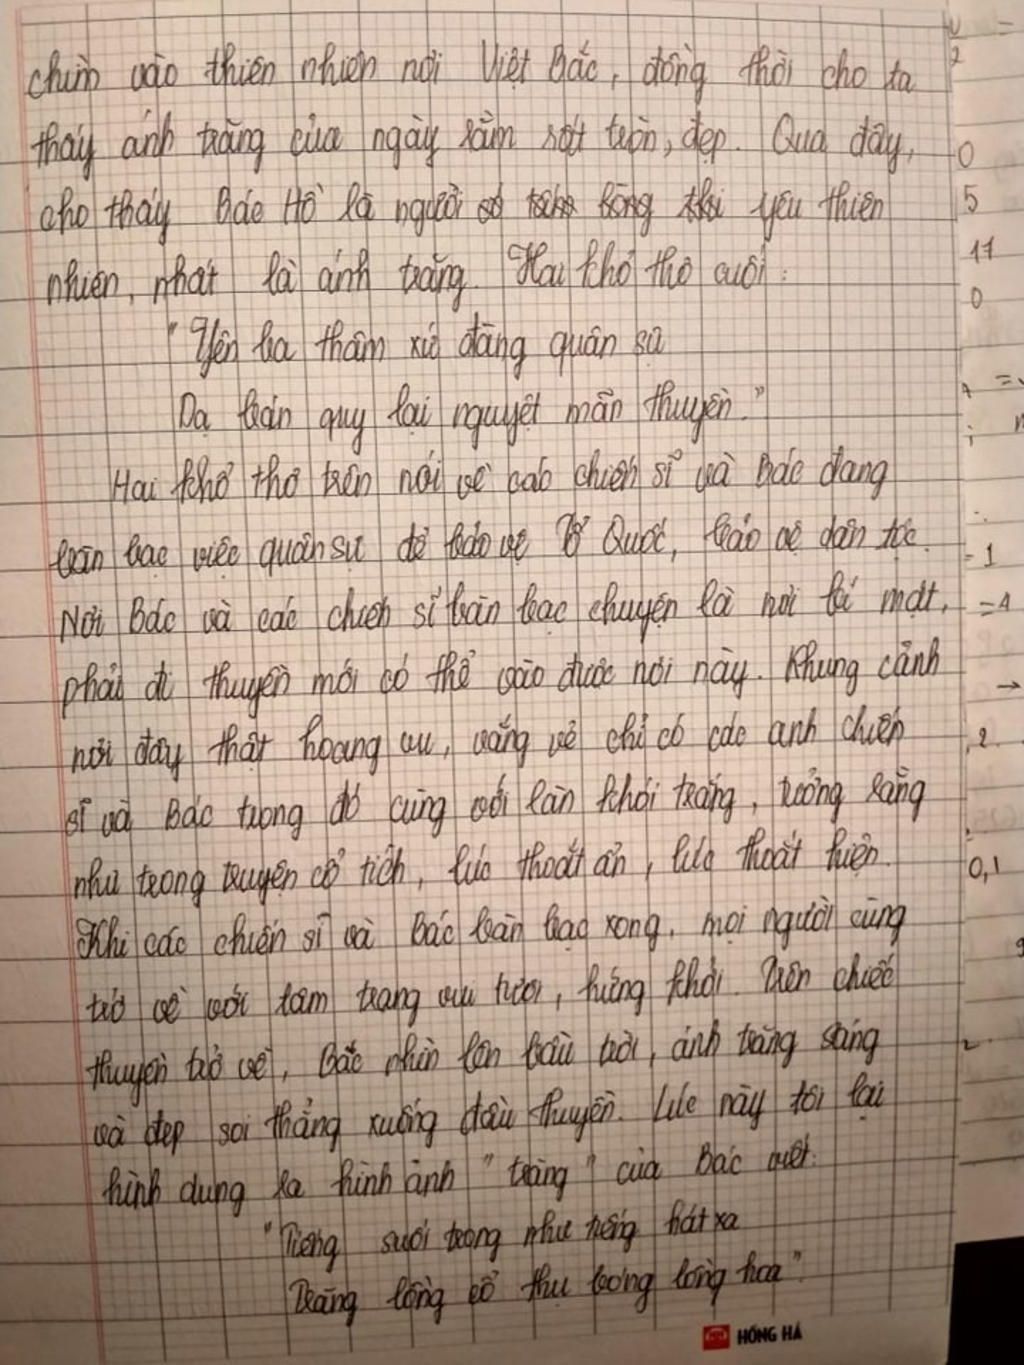 chìm vào thiên nhiên nơi Việt Bắc, đồng thời cho ta
thấy ánh trăng của ngày rằm rất tròn, đẹp. Qua đây,
cho thấy Bác Hồ là người yêu thiên
nhiên, nhất là ánh trăng. Hai khổ thơ cuối:
"Yên ba thâm xứ đàng quân sự
Dạ bán quy lại nguyệt mãn thuyền."
Hai khổ thơ trên nói về các chiến sĩ và Bác đang
bàn bạc việc quân sự để bảo vệ Tổ Quốc, bảo vệ dân tộc.
Nơi Bác và các chiến sĩ bàn bạc chuyện là nơi bí mật,
phải đi thuyền mới có thể vào được nơi này. Khung cảnh
nơi đây thật hoang vu, vắng vẻ chỉ có các anh chiến
sĩ và Bác trong đó cùng với làn khói trắng, tưởng rằng
như trong truyện cổ tích, lúc thoắt ẩn, lúc thoắt hiện.
Khi các chiến sĩ và Bác bàn bạc xong, mọi người cùng
trở về với tâm trạng vui tươi, hứng khởi. Trên chiếc
thuyền trở về, Bác nhìn lên bầu trời, ánh trăng sáng
và đẹp soi thẳng xuống đầu thuyền. Lúc này tôi lại
hình dung ra hình ảnh "trăng" của Bác viết:
"Tiếng suối trong như tiếng hát xa
Trăng lồng cổ thụ bóng lồng hoa"
HỒNG HÀ
0
5
17
0
= 1
= 4
→
2
0,1